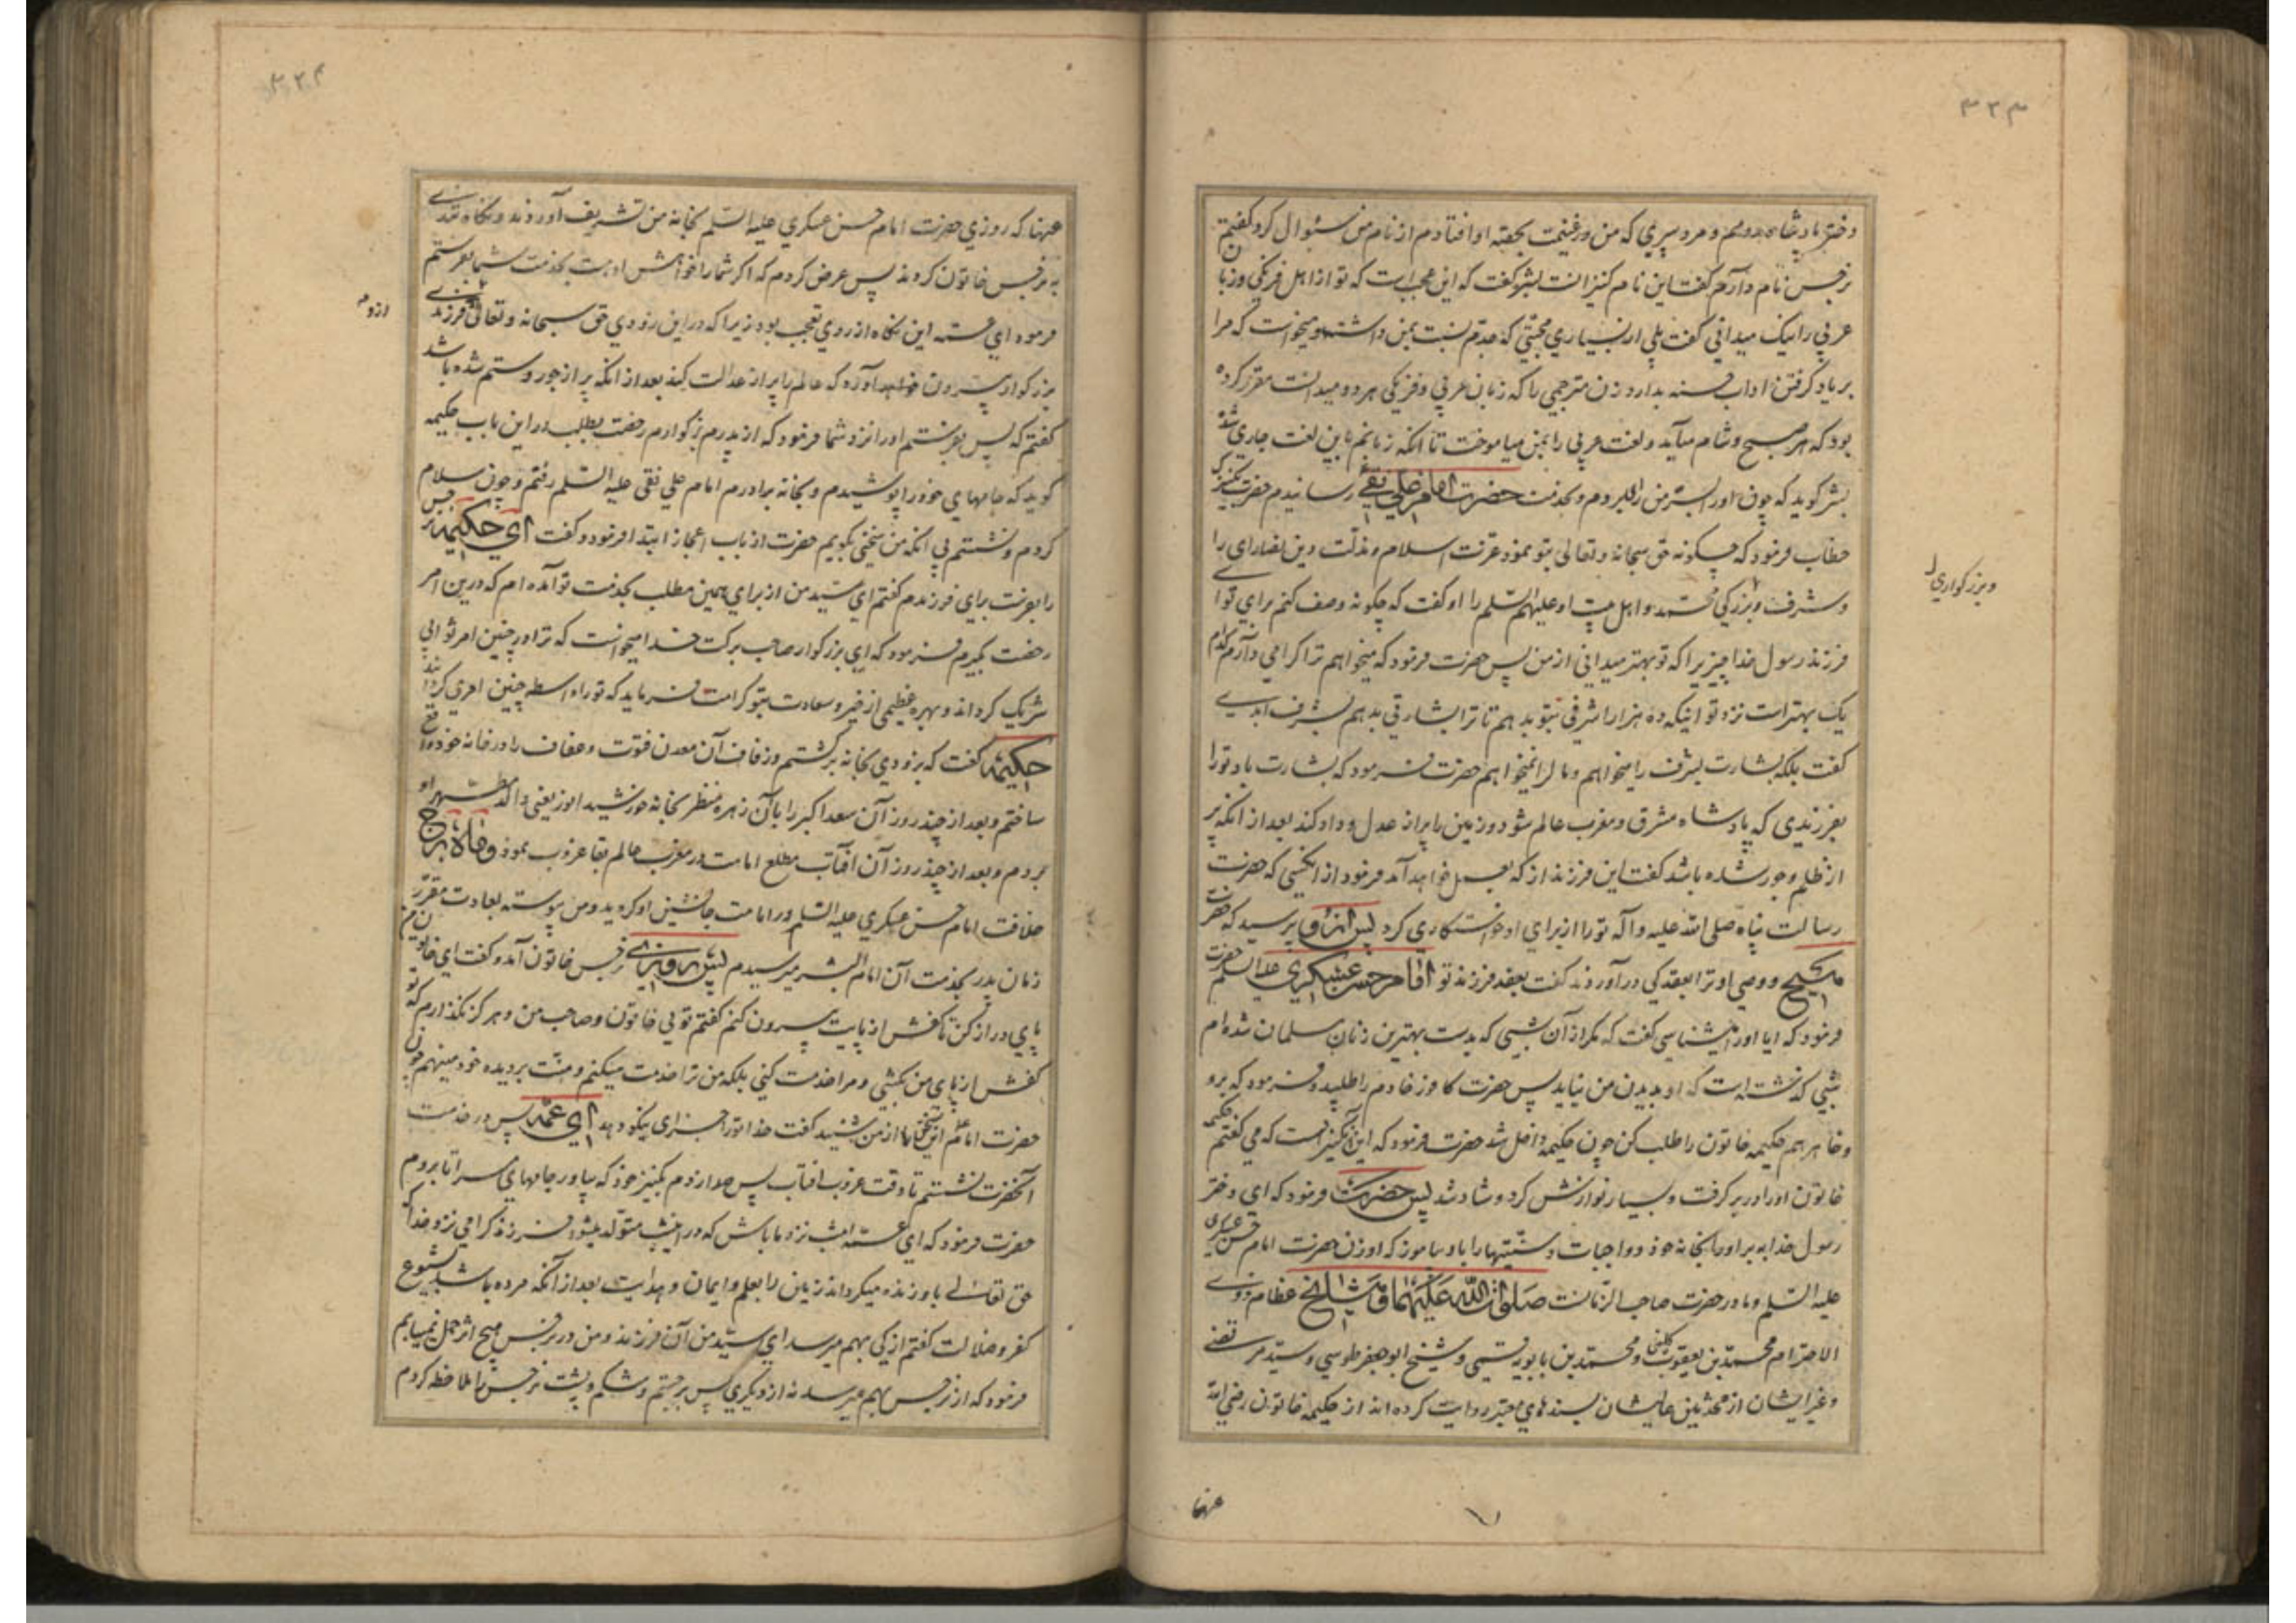 ۳۲۳
دختر پادشاه رومم و مرد پیری که من در غنیمت بحصّه او افتادم از نام من سئوال کرد گفتم
نرجس نام دارم گفت این نام کنیزانست بشر گفت که این عجب است که تو از اهل فرنگی و زبان
عربی را نیک میدانی گفت بلی از بسیاری محبّتی که جدّم نسبت بمن داشت و میخواست که مرا
بر یاد گرفتن اداب حسنه بدارد زن مترجمی را که زبان عربی و فرنگی هر دو میدانست مقرّر کرده
بود که هر صبح و شام میآمد و لغت عربی را بمن میاموخت تا انکه زبانم باین لغت جاری شد
بشر گوید که چون او را بسرّ من رای بردم و بخدمت حضرت امام علی نقی رسانیدم حضرت بکنیزک
خطاب فرمود که چگونه حق سبحانه و تعالی بتو نمود عزّت اسلام و مذلّت دین نصارای را
و شرف و بزرگی محمّد و اهل بیت او علیهم السّلم را او گفت که چگونه وصف کنم برای تو ای
و بزرگواری
فرزند رسول خدا چیزیرا که تو بهتر میدانی از من پس حضرت فرمود که میخواهم ترا گرامی دارم کدام
یک بهتر است نزد تو اینکه ده هزار اشرفی بتو بدهم تا ترا بشارتی بدهم بشرف ابدی
گفت بلکه بشارت بشرف را میخواهم و مال را نمیخواهم حضرت فرمود که بشارت باد تو را
بفرزندی که پادشاه مشرق و مغرب عالم شود و زمین را پر از عدل و داد کند بعد از انکه پر
از ظلم و جور شده باشد گفت این فرزند از که بعمل خواهد آمد فرمود از انکسی که حضرت
رسالت پناه صلی الله علیه و آله تو را از برای او خواستگاری کرد پس از او پرسید که حضرت
مسیح و وصی او ترا بعقد کی در آوردند گفت بعقد فرزند تو امام حسن عسکری علیه السلم حضرت
فرمود که ایا او را میشناسی گفت که مگر از آن شبی که بدست بهترین زنان مسلمان شده ام
شبی گذشته است که او بدیدن من نیاید پس حضرت کافور خادم را طلبید و فرمود که برو
و خاهرم حکیمه خاتون را طلب کن چون حکیمه داخل شد حضرت فرمود که این آن کنیز است که می گفتم حکیمه
خاتون او را در بر گرفت و بسیار نوازنش کرد و شاد شد پس حضرت فرمود که ای دختر
رسول خدا ببر او را بخانه خود و واجبات و سنّتیها را باو بیاموز که او زن حضرت امام حسن عسکری
علیه السّلم و مادر حضرت صاحب الزّمانست صلوات الله علیهما و مشایخ عظام ذوی
الاحترام محمّد بن یعقوب کلینی و محمّد بن بابویه قمی و شیخ ابو جعفر طوسی و سیّد مرتضی
و غیر ایشان از محدّثین عالیشان بسندهای معتبر روایت کرده اند از حکیمه خاتون رضی الله
عنها
۳۲۴
عنها که روزی حضرت امام حسن عسکری علیه السّلم بخانه من تشریف آوردند و نگاه تندی
به نرجس خاتون کردند پس عرض کردم که اگر شما را خواهش او هست بخدمت شما بفرستم
فرمود ای عمّه این نگاه از روی تعجب بود زیرا که در این زودی حق سبحانه و تعالی فرزندی
ازو
بزرگوار بیرون خواهد آورد که عالم را پر از عدالت کند بعد از انکه پر از جور و ستم شده باشد
گفتم که پس بفرستم او را نزد شما فرمود که از پدرم بزرگوارم رخصت بطلب در این باب حکیمه
گوید که جامهای خود را پوشیدم و بخانه برادرم امام علی نقی علیه السّلم رفتم و چون سلام
کردم و نشستم بی انکه من سخنی بگویم حضرت از باب اعجاز ابتدا فرمود و گفت ای حکیمه نرجس
را بفرست برای فرزندم گفتم ای سیّد من از برای همین مطلب بخدمت تو آمده ام که درین امر
رخصت بگیرم فرمود که ای بزرگوار صاحب برکت خدا میخواست که ترا در چنین امر ثوابی
شریک گرداند و بهره عظیمی از خیر و سعادت بتو کرامت فرماید که تو را واسطه چنین امری گرداند
حکیمه گفت که بزودی بخانه برگشتم و زفاف آن معدن فتوّت و عفاف را در خانه خود واقع
ساختم و بعد از چند روز آن سعد اکبر را با آن زهره منظر بخانه خورشید انور یعنی والد مطهّر او
بردم و بعد از چند روز آن افتاب مطلع امامت در مغرب عالم بقا غروب نمود و ماه برج
خلافت امام حسن عسکری علیه السّلم در امامت جانشین او گردید و من پیوسته بعادت مقرّر
زمان پدر بخدمت آن امام البشر میرسیدم پس روزی نرجس خاتون آمد و گفت ای خاتون من
پای دراز کن تا کفش از پایت بیرون کنم گفتم تویی خاتون و صاحب من و هرگز نگذارم که تو
کفش از پای من بکشی و مرا خدمت کنی بلکه من ترا خدمت میکنم و منّت بر دیده خود مینهم چون
حضرت امام این سخن را از من شنید گفت خدا تو را جزای نیکو دهد ای عمّه پس در خدمت
آنحضرت نشستم تا وقت غروب افتاب پس صدا زدم بکنیز خود که بیاور جامهای مرا تا بروم
حضرت فرمود که ای عمّه امشب نزد ما باش که در این شب متولّد میشود فرزند گرامی نزد خدا که
حق تعالی باو زنده میگرداند زمین را بعلم و ایمان و هدایت بعد از انکه مرده باشد بشیوع
کفر و ضلالت گفتم از کی بهم میرسد ای سیّد من آن فرزند و من در نرجس هیچ اثر حمل نمییابم
فرمود که از نرجس بهم میرسد نه از دیگری پس برجستم و شکم و پشت نرجس را ملاحظه کردم